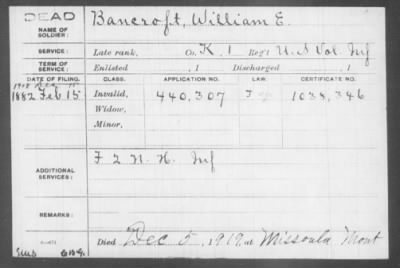 DEAD
NAME OF SOLDIER: Bancroft, William E.
SERVICE: Late rank, Co. K, 1 Reg't U.S. Vol. Inf
TERM OF SERVICE: Enlisted , 1 Discharged , 1
DATE OF FILING. CLASS. APPLICATION NO. LAW. CERTIFICATE NO.
1882 Feb 15 Invalid, 440,307 1038,346
Widow,
Minor,
ADDITIONAL SERVICES: F 2 N. H. Inf
REMARKS:
Died Dec 5, 1919, at Missoula Mont